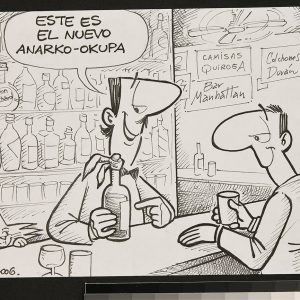 ESTE ES
EL NUEVO
ANARKO-OKUPA
CAMISAS
QUIROGA
Colchones
Durán
Bar
Manhattan